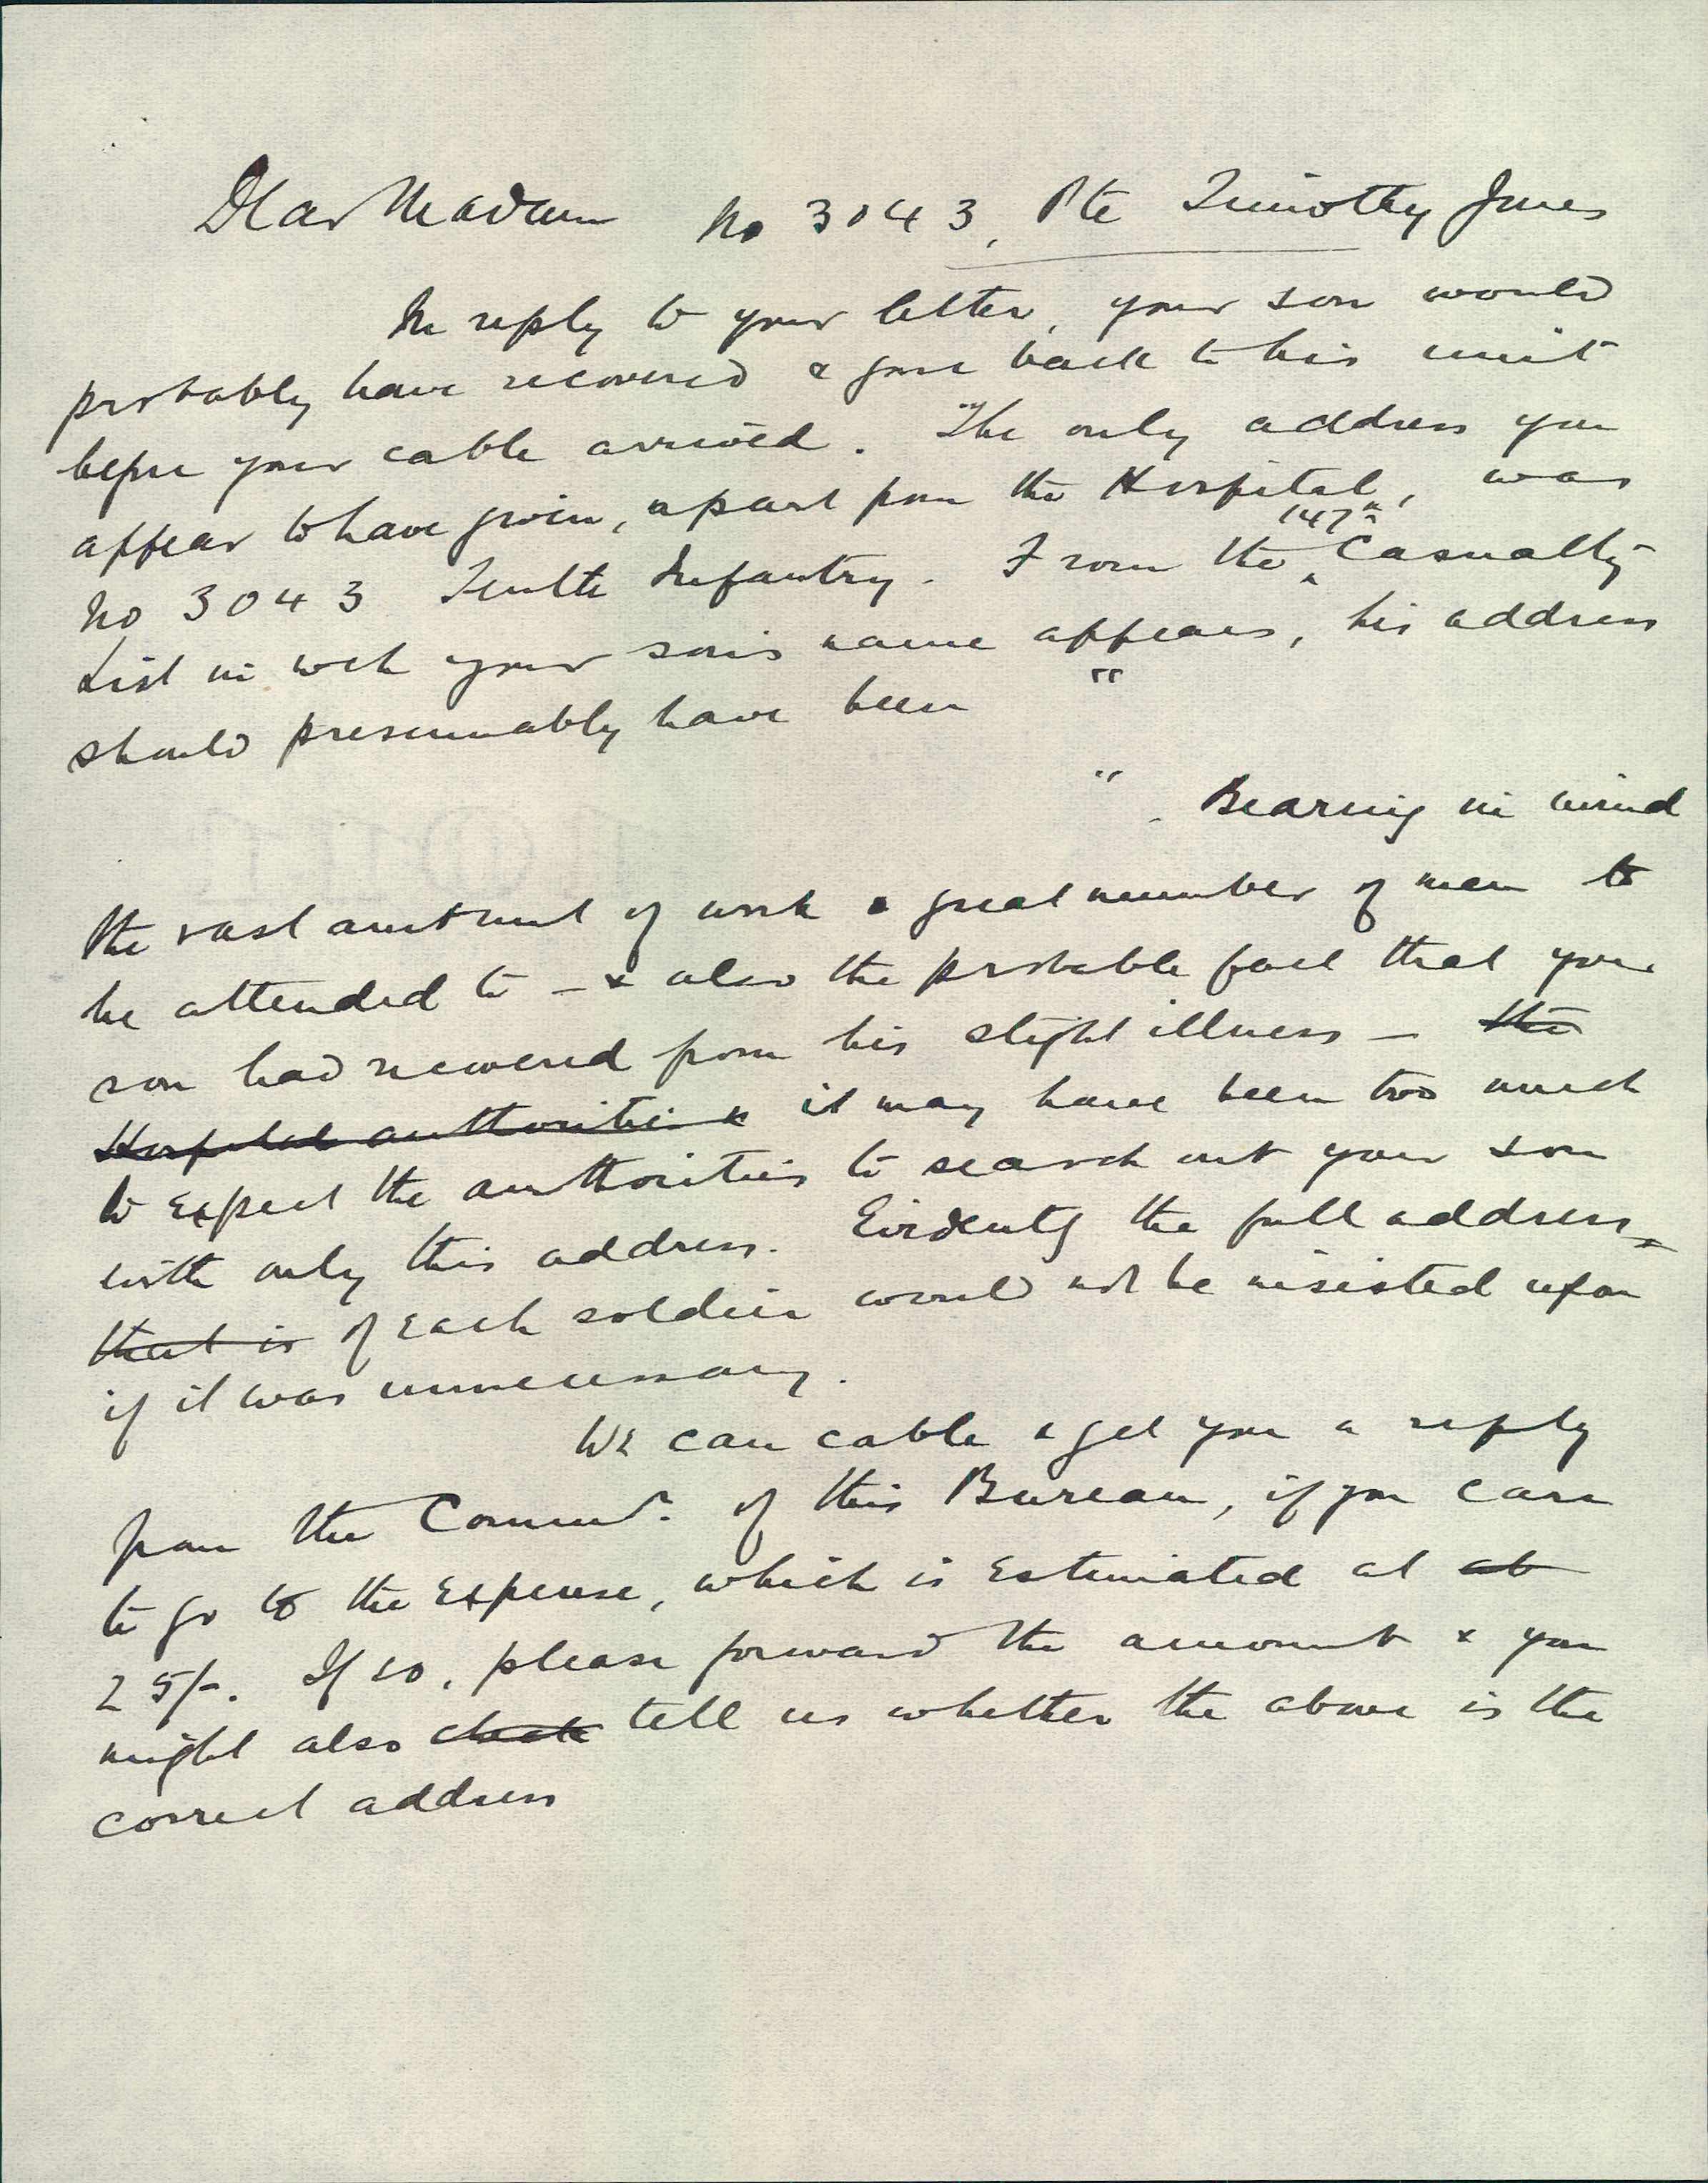 Dear Madam No 3043, Pte Timothy Jones
In reply to your letter, your son would
probably have recovered & gone back to his unit
before your cable arrived. The only address you
appear to have given, apart from the Hospital, was
No 3043 Tenth Infantry. From the 147th Casualty
List in wch your son's name appears, his address
should presumably have been "
" . Bearing in mind
the vast amount of work & great number of men to
be attended to – & also the probable fact that your
son had recovered from his slight illness – the
Hospital authorities it may have been too much
to expect the authorities to search out your son
with only this address. Evidently the full address
that is of each soldier would not be insisted upon
if it was unnecessary.
We can cable & get you a reply
from the Commr. of this Bureau, if you care
to go to the expense, which is estimated at at
25/-. If so, please forward the amount & you
might also check tell us whether the above is the
correct address